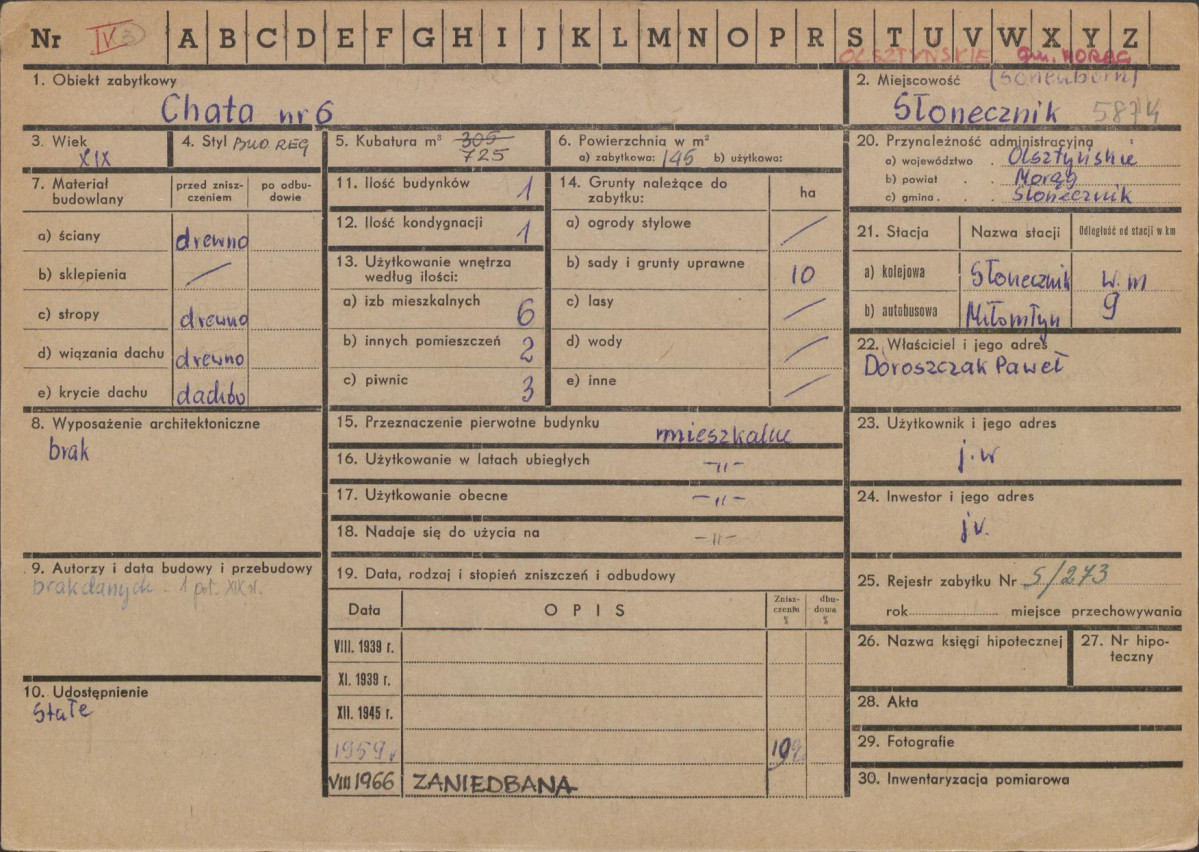 Nr IV A B C D E F G H I J K L M N O P R S T U V W X Y Z
OLSZTYŃSKIE gm. MORĄG
1. Obiekt zabytkowy
Chata nr 6
2. Miejscowość (Sonenborn)
Słonecznik 5874
3. Wiek
XIX
4. Styl BUD. REG
5. Kubatura m³ 305
725
6. Powierzchnia w m²
a) zabytkowa: 145 b) użytkowa:
7. Materiał budowlany
przed zniszczeniem
po odbudowie
a) ściany drewno
b) sklepienia /
c) stropy drewno
d) wiązania dachu drewno
e) krycie dachu dachów
8. Wyposażenie architektoniczne
brak
9. Autorzy i data budowy i przebudowy
brak danych - 1 poł. XIX w.
10. Udostępnienie
Stałe
11. Ilość budynków 1
12. Ilość kondygnacji 1
13. Użytkowanie wnętrza
według ilości:
a) izb mieszkalnych 6
b) innych pomieszczeń 2
c) piwnic 3
14. Grunty należące do
zabytku: ha
a) ogrody stylowe /
b) sady i grunty uprawne 10
c) lasy /
d) wody /
e) inne /
15. Przeznaczenie pierwotne budynku mieszkalne
16. Użytkowanie w latach ubiegłych -"-
17. Użytkowanie obecne -"-
18. Nadaje się do użycia na -"-
19. Data, rodzaj i stopień zniszczeń i odbudowy
Data OPIS Zniszczenia % dbudowa %
VIII. 1939 r.
XI. 1939 r.
XII. 1945 r.
1959 r
VIII 1966 ZANIEDBANA
20. Przynależność administracyjna
a) województwo Olsztyńskie
b) powiat Morąg
c) gmina Słonecznik
21. Stacja Nazwa stacji Odległość od stacji w km
a) kolejowa Słonecznik w. m
b) autobusowa Miłomłyn 9
22. Właściciel i jego adres
Doroszczak Paweł
23. Użytkownik i jego adres
j.w
24. Inwestor i jego adres
j.w.
25. Rejestr zabytku Nr S/273
rok miejsce przechowywania
26. Nazwa księgi hipotecznej
27. Nr hipoteczny
28. Akta
29. Fotografie
30. Inwentaryzacja pomiarowa